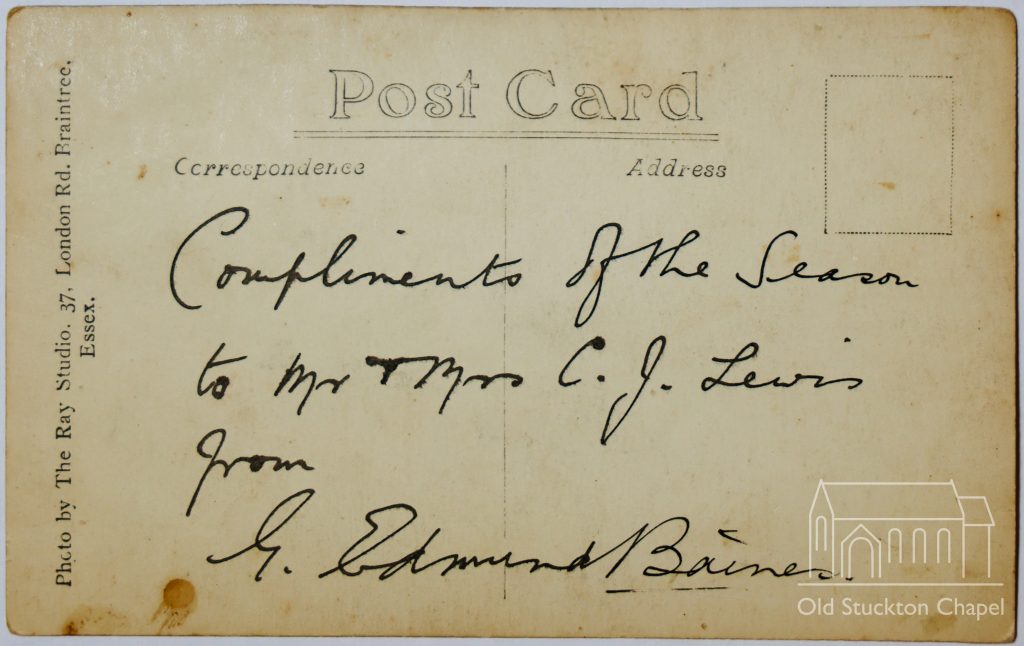 Post Card
Correspondence
Address
Compliments of the Season
to Mr & Mrs C. J. Lewis
from
G. Edmund Baines.
Photo by The Ray Studio. 37, London Rd. Braintree,
Essex.
Old Stuckton Chapel